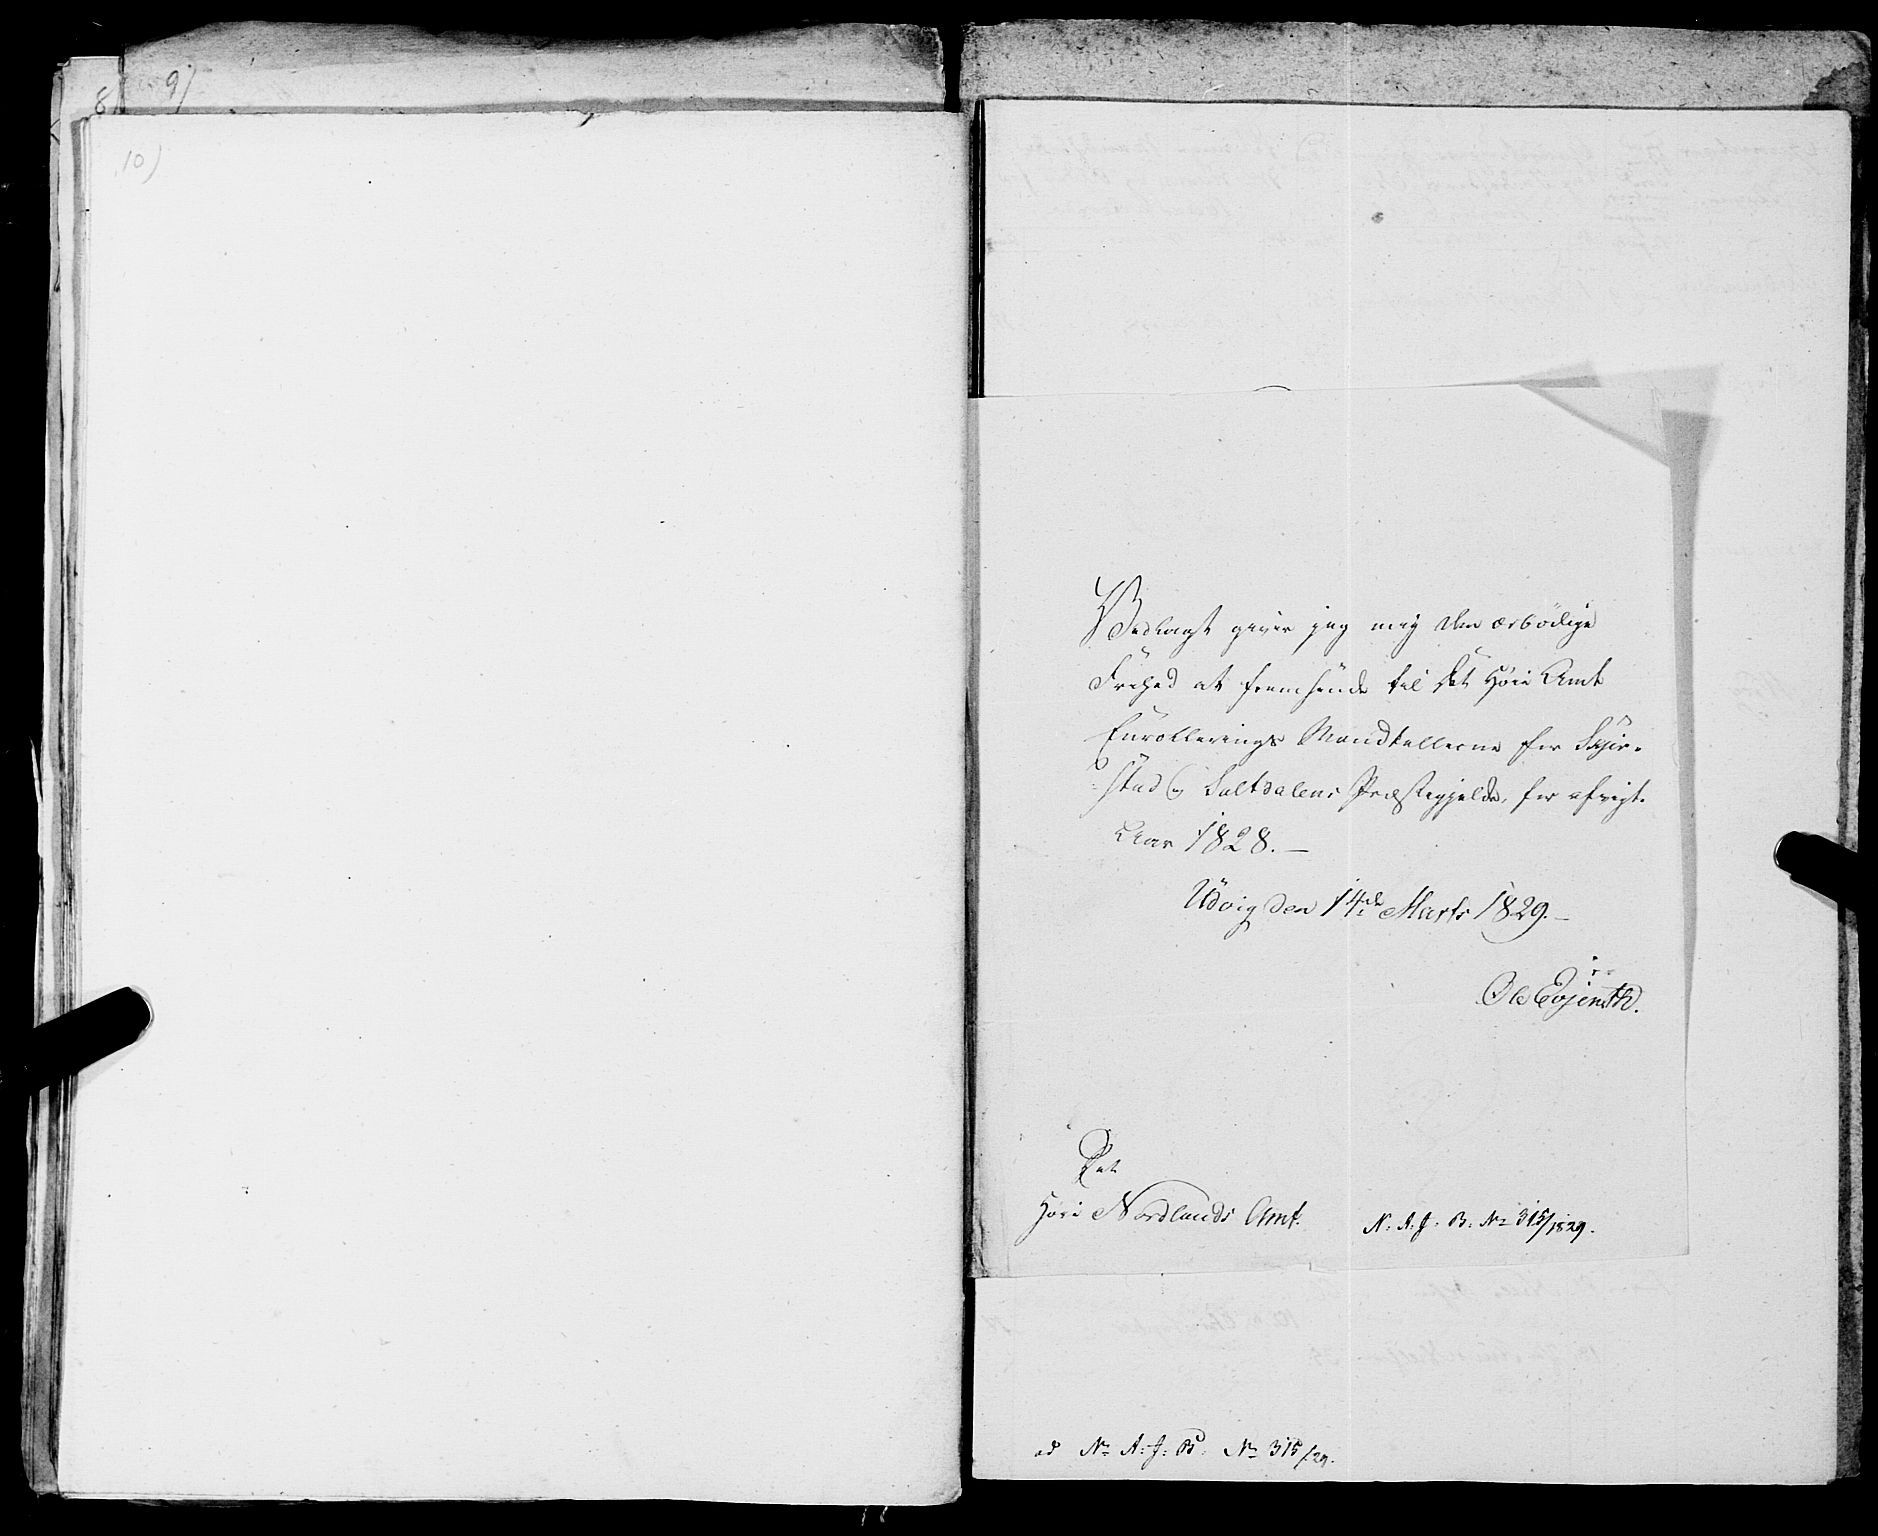 8
9)
10)
Vedlagt giver jeg mig den ærbödige
Frihed at fremsende til det Höie Amt
Enrollerings Mandtallerne for Skjer-
stad og Saltdalens Præstegjelde, for afvigt.
Aar 1828. —
Udvig den 14de Marts 1829. —
Ole Evjenth.
Det
Höie Nordlands Amt.
N: A: J: B: No 315/1829.
ad No A: J: B: No 315/29.